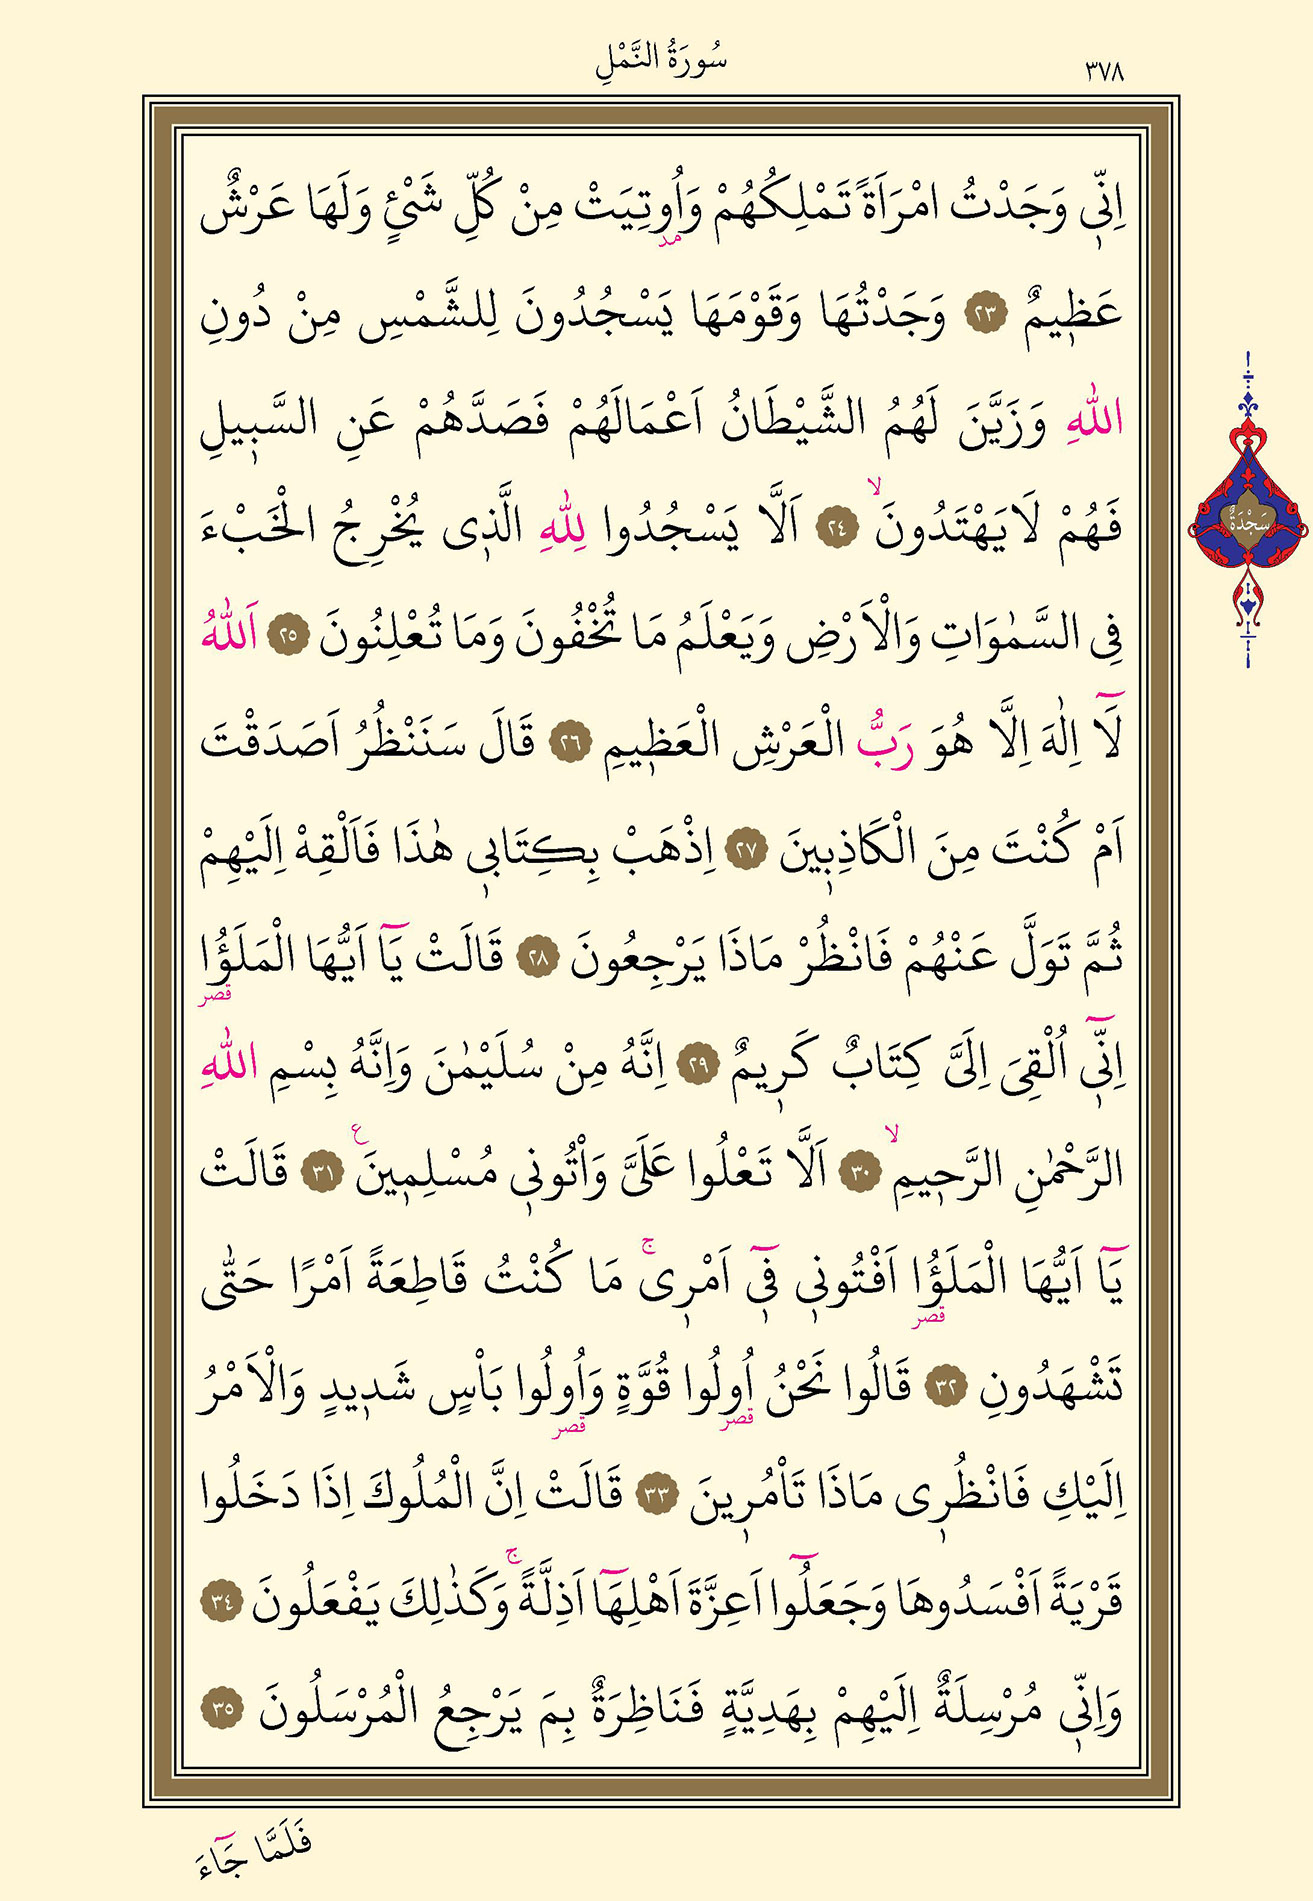 ٣٧٨
سُورَةُ النَّمْلِ
اِنّ۪ي وَجَدْتُ امْرَاَةً تَمْلِكُهُمْ وَاُو۫تِيَتْ مِنْ كُلِّ شَيْءٍ وَلَهَا عَرْشٌ
مد
عَظ۪يمٌ ٢٣ وَجَدْتُهَا وَقَوْمَهَا يَسْجُدُونَ لِلشَّمْسِ مِنْ دُونِ
اللّٰهِ وَزَيَّنَ لَهُمُ الشَّيْطَانُ اَعْمَالَهُمْ فَصَدَّهُمْ عَنِ السَّب۪يلِ
فَهُمْ لَا يَهْتَدُونَۙ ٢٤ اَلَّا يَسْجُدُوا لِلّٰهِ الَّذ۪ى يُخْرِجُ الْخَبْءَ
سَجْدَةٌ
فِى السَّمٰوَاتِ وَالْاَرْضِ وَيَعْلَمُ مَا تُخْفُونَ وَمَا تُعْلِنُونَ ٢٥ اَللّٰهُ
لَٓا اِلٰهَ اِلَّا هُوَ رَبُّ الْعَرْشِ الْعَظ۪يمِ ٢٦ قَالَ سَنَنْظُرُ اَصَدَقْتَ
اَمْ كُنْتَ مِنَ الْكَاذِب۪ينَ ٢٧ اِذْهَبْ بِكِتَاب۪ي هٰذَا فَاَلْقِهْ اِلَيْهِمْ
ثُمَّ تَوَلَّ عَنْهُمْ فَانْظُرْ مَاذَا يَرْجِعُونَ ٢٨ قَالَتْ يَٓا اَيُّهَا الْمَلَؤُا
قصر
اِنّ۪ٓي اُلْقِىَ اِلَىَّ كِتَابٌ كَر۪يمٌ ٢٩ اِنَّهُ مِنْ سُلَيْمٰنَ وَاِنَّهُ بِسْمِ اللّٰهِ
الرَّحْمٰنِ الرَّح۪يمِۙ ٣٠ اَلَّا تَعْلُوا عَلَىَّ وَاْتُون۪ي مُسْلِم۪ينَ ع ٣١ قَالَتْ
يَٓا اَيُّهَا الْمَلَؤُا اَفْتُون۪ي ف۪ٓي اَمْر۪ىۚ مَا كُنْتُ قَاطِعَةً اَمْرًا حَتّٰى
قصر
تَشْهَدُونِ ٣٢ قَالُوا نَحْنُ اُولُوا قُوَّةٍ وَاُولُوا بَاْسٍ شَد۪يدٍ وَالْاَمْرُ
قصر قصر
اِلَيْكِ فَانْظُر۪ى مَاذَا تَاْمُر۪ينَ ٣٣ قَالَتْ اِنَّ الْمُلُوكَ اِذَا دَخَلُوا
قَرْيَةً اَفْسَدُوهَا وَجَعَلُٓوا اَعِزَّةَ اَهْلِهَٓا اَذِلَّةًۚ وَكَذٰلِكَ يَفْعَلُونَ ٣٤
وَاِنّ۪ي مُرْسِلَةٌ اِلَيْهِمْ بِهَدِيَّةٍ فَنَاظِرَةٌ بِمَ يَرْجِعُ الْمُرْسَلُونَ ٣٥
فَلَمَّا جَٓاءَ